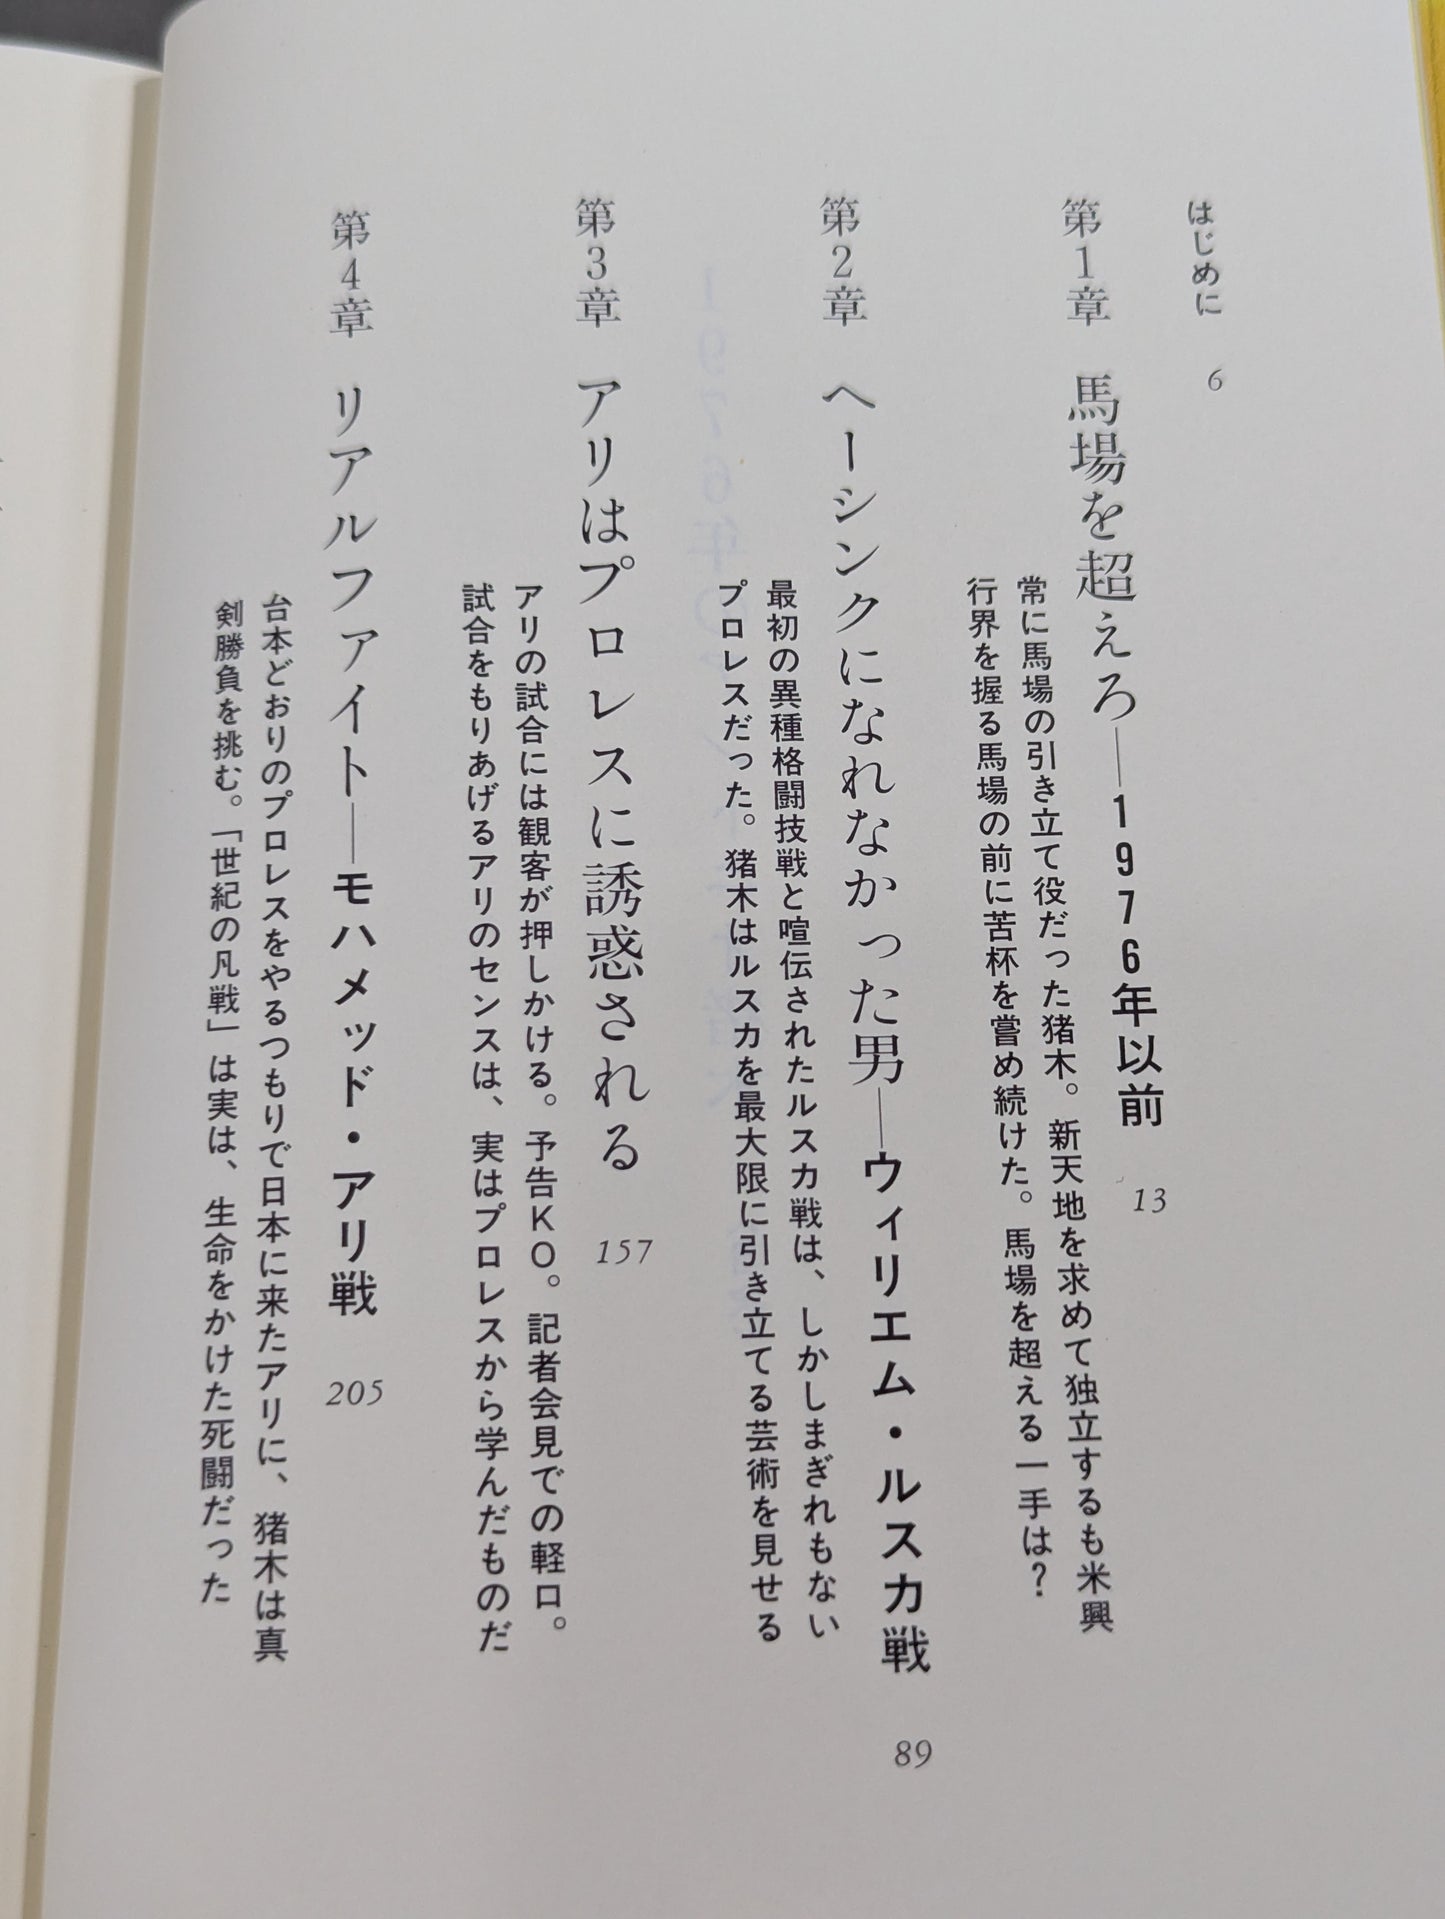 はじめに 6
第1章 馬場を超えろ──1976年以前 13
常に馬場の引き立て役だった猪木。新天地を求めて独立するも米興
行界を握る馬場の前に苦杯を嘗め続けた。馬場を超える一手は？
第2章 ヘーシンクになれなかった男──ウィリエム・ルスカ戦 89
最初の異種格闘技戦と喧伝されたルスカ戦は、しかしまぎれもない
プロレスだった。猪木はルスカを最大限に引き立てる芸術を見せる
第3章 アリはプロレスに誘惑される 157
アリの試合には観客が押しかける。予告KO。記者会見での軽口。
試合をもりあげるアリのセンスは、実はプロレスから学んだものだ
第4章 リアルファイト──モハメッド・アリ戦 205
台本どおりのプロレスをやるつもりで日本に来たアリに、猪木は真
剣勝負を挑む。「世紀の凡戦」は実は、生命をかけた死闘だった